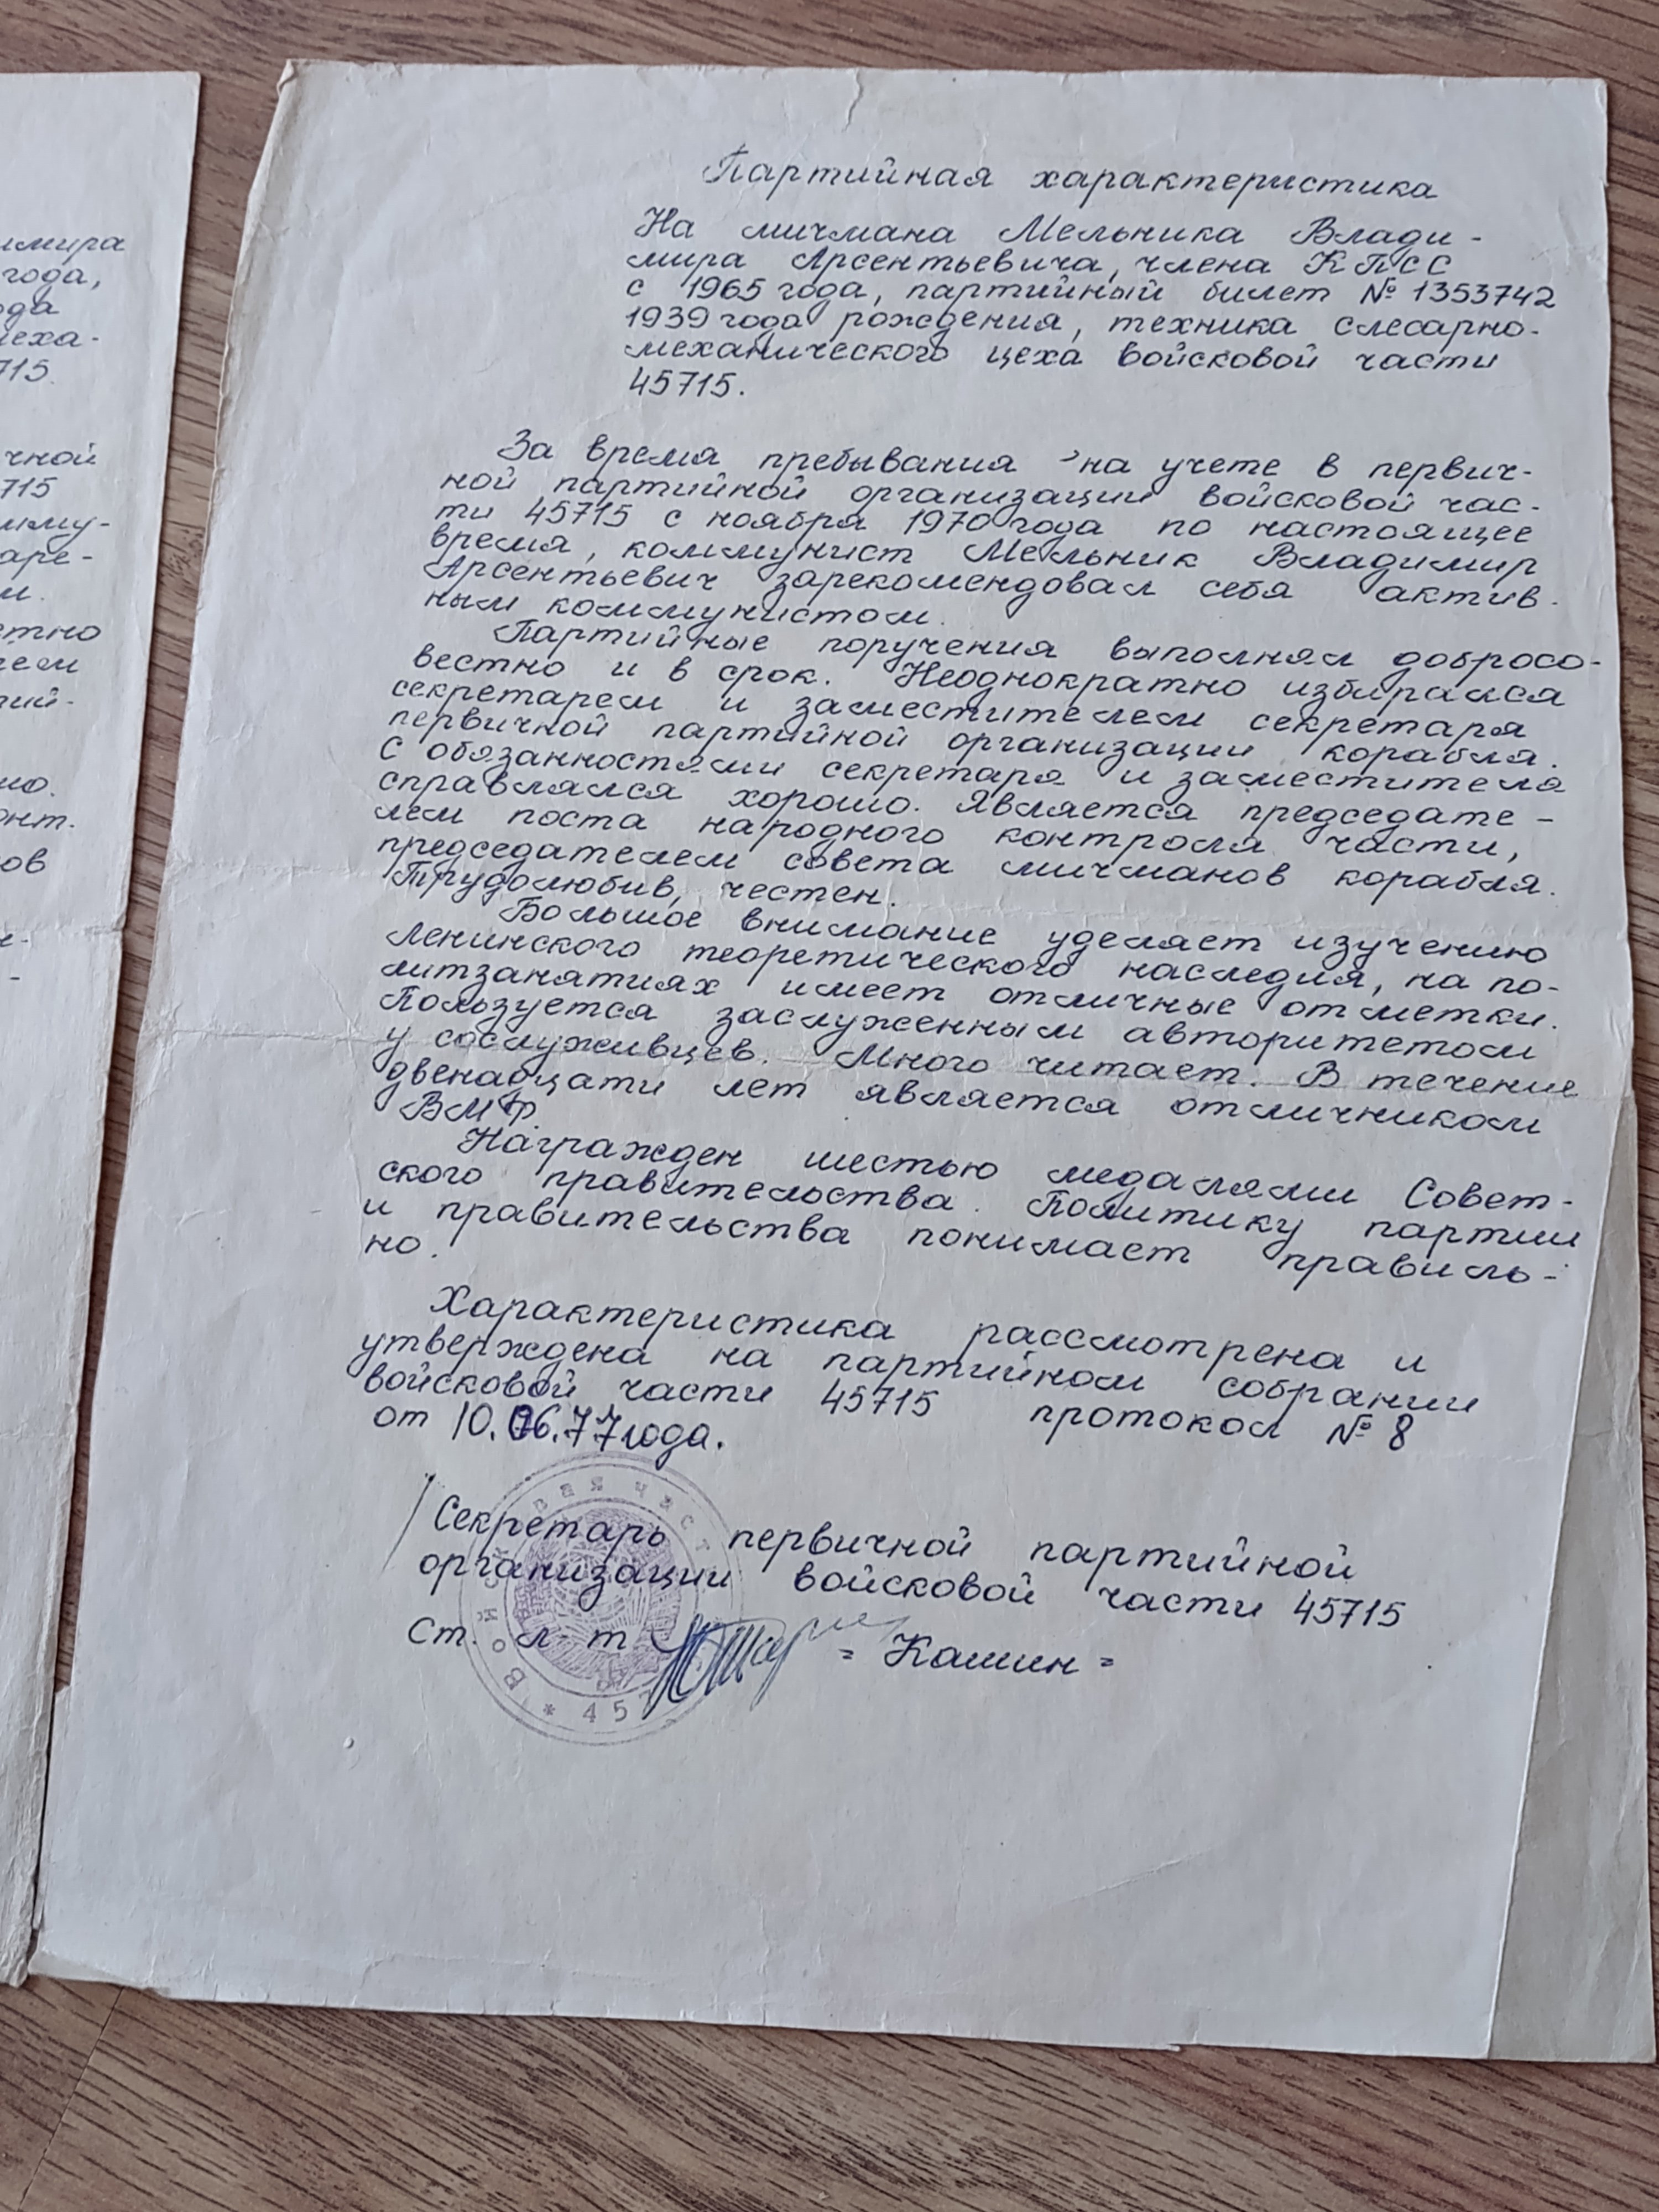 имира
года,
ода
меха-
715.
чной
715
мму-
аре-
и.
етно
тий-
но.
онт.
ов
Партийная характеристика
На мичмана Мельника Влади-
мира Арсентьевича, члена КПСС
с 1965 года, партийный билет № 1353742
1939 года рождения, техника слесарно-
механического цеха войсковой части
45715.
За время пребывания на учете в первич-
ной партийной организации войсковой час-
ти 45715 с ноября 1970 года по настоящее
время, коммунист Мельник Владимир
Арсентьевич зарекомендовал себя актив-
ным коммунистом.
Партийные поручения выполнял добросо-
вестно и в срок. Неоднократно избирался
секретарем и заместителем секретаря
первичной партийной организации корабля.
С обязанностями секретаря и заместителя
справлялся хорошо. Является председате-
лем поста народного контроля части,
председателем совета мичманов корабля.
Трудолюбив, честен.
Большое внимание уделяет изучению
Ленинского теоретического наследия, на по-
литзанятиях имеет отличные отметки.
Пользуется заслуженным авторитетом
у сослуживцев. Много читает. В течение
двенадцати лет является отличником
ВМФ.
Награжден шестью медалями Совет-
ского правительства. Политику партии
и правительства понимает правиль-
но.
Характеристика рассмотрена и
утверждена на партийном собрании
войсковой части 45715 протокол № 8
от 10.06.77 года.
Секретарь первичной партийной
организации войсковой части 45715
Ст. л-т = Кашин =
Войсковая част
* 457